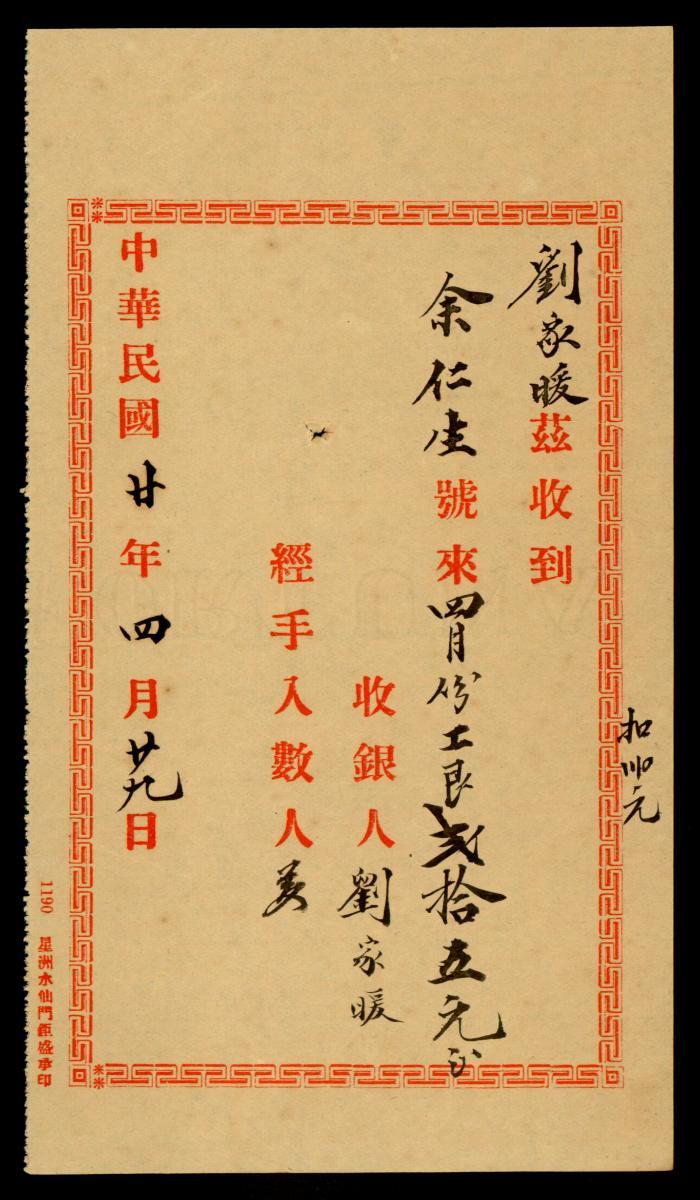 扣〣元
劉家暖茲收到
余仁生號來四月份工艮弍拾五元
收銀人劉家暖
經手入數人
中華民國廿年四月廿九日
1190 星洲水仙門鉅盛承印